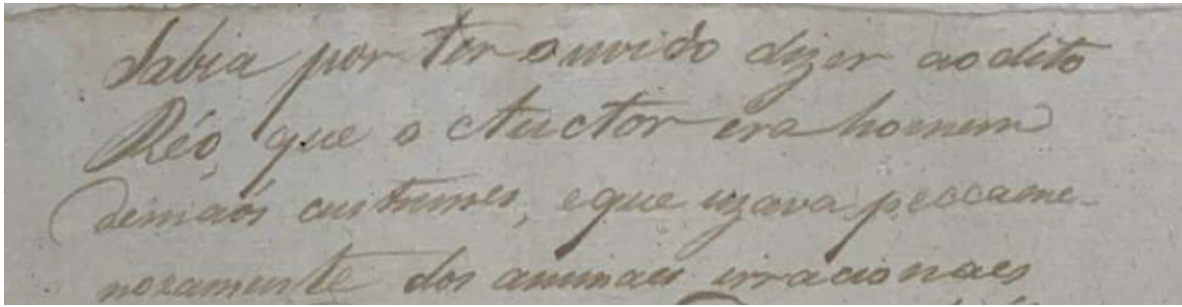 Sabia por ter ouvido dizer ao dito
Réo, que o Auctor era homem
demaós custumes, eque uzava peccame-
nozamente dos animaes irracionaes